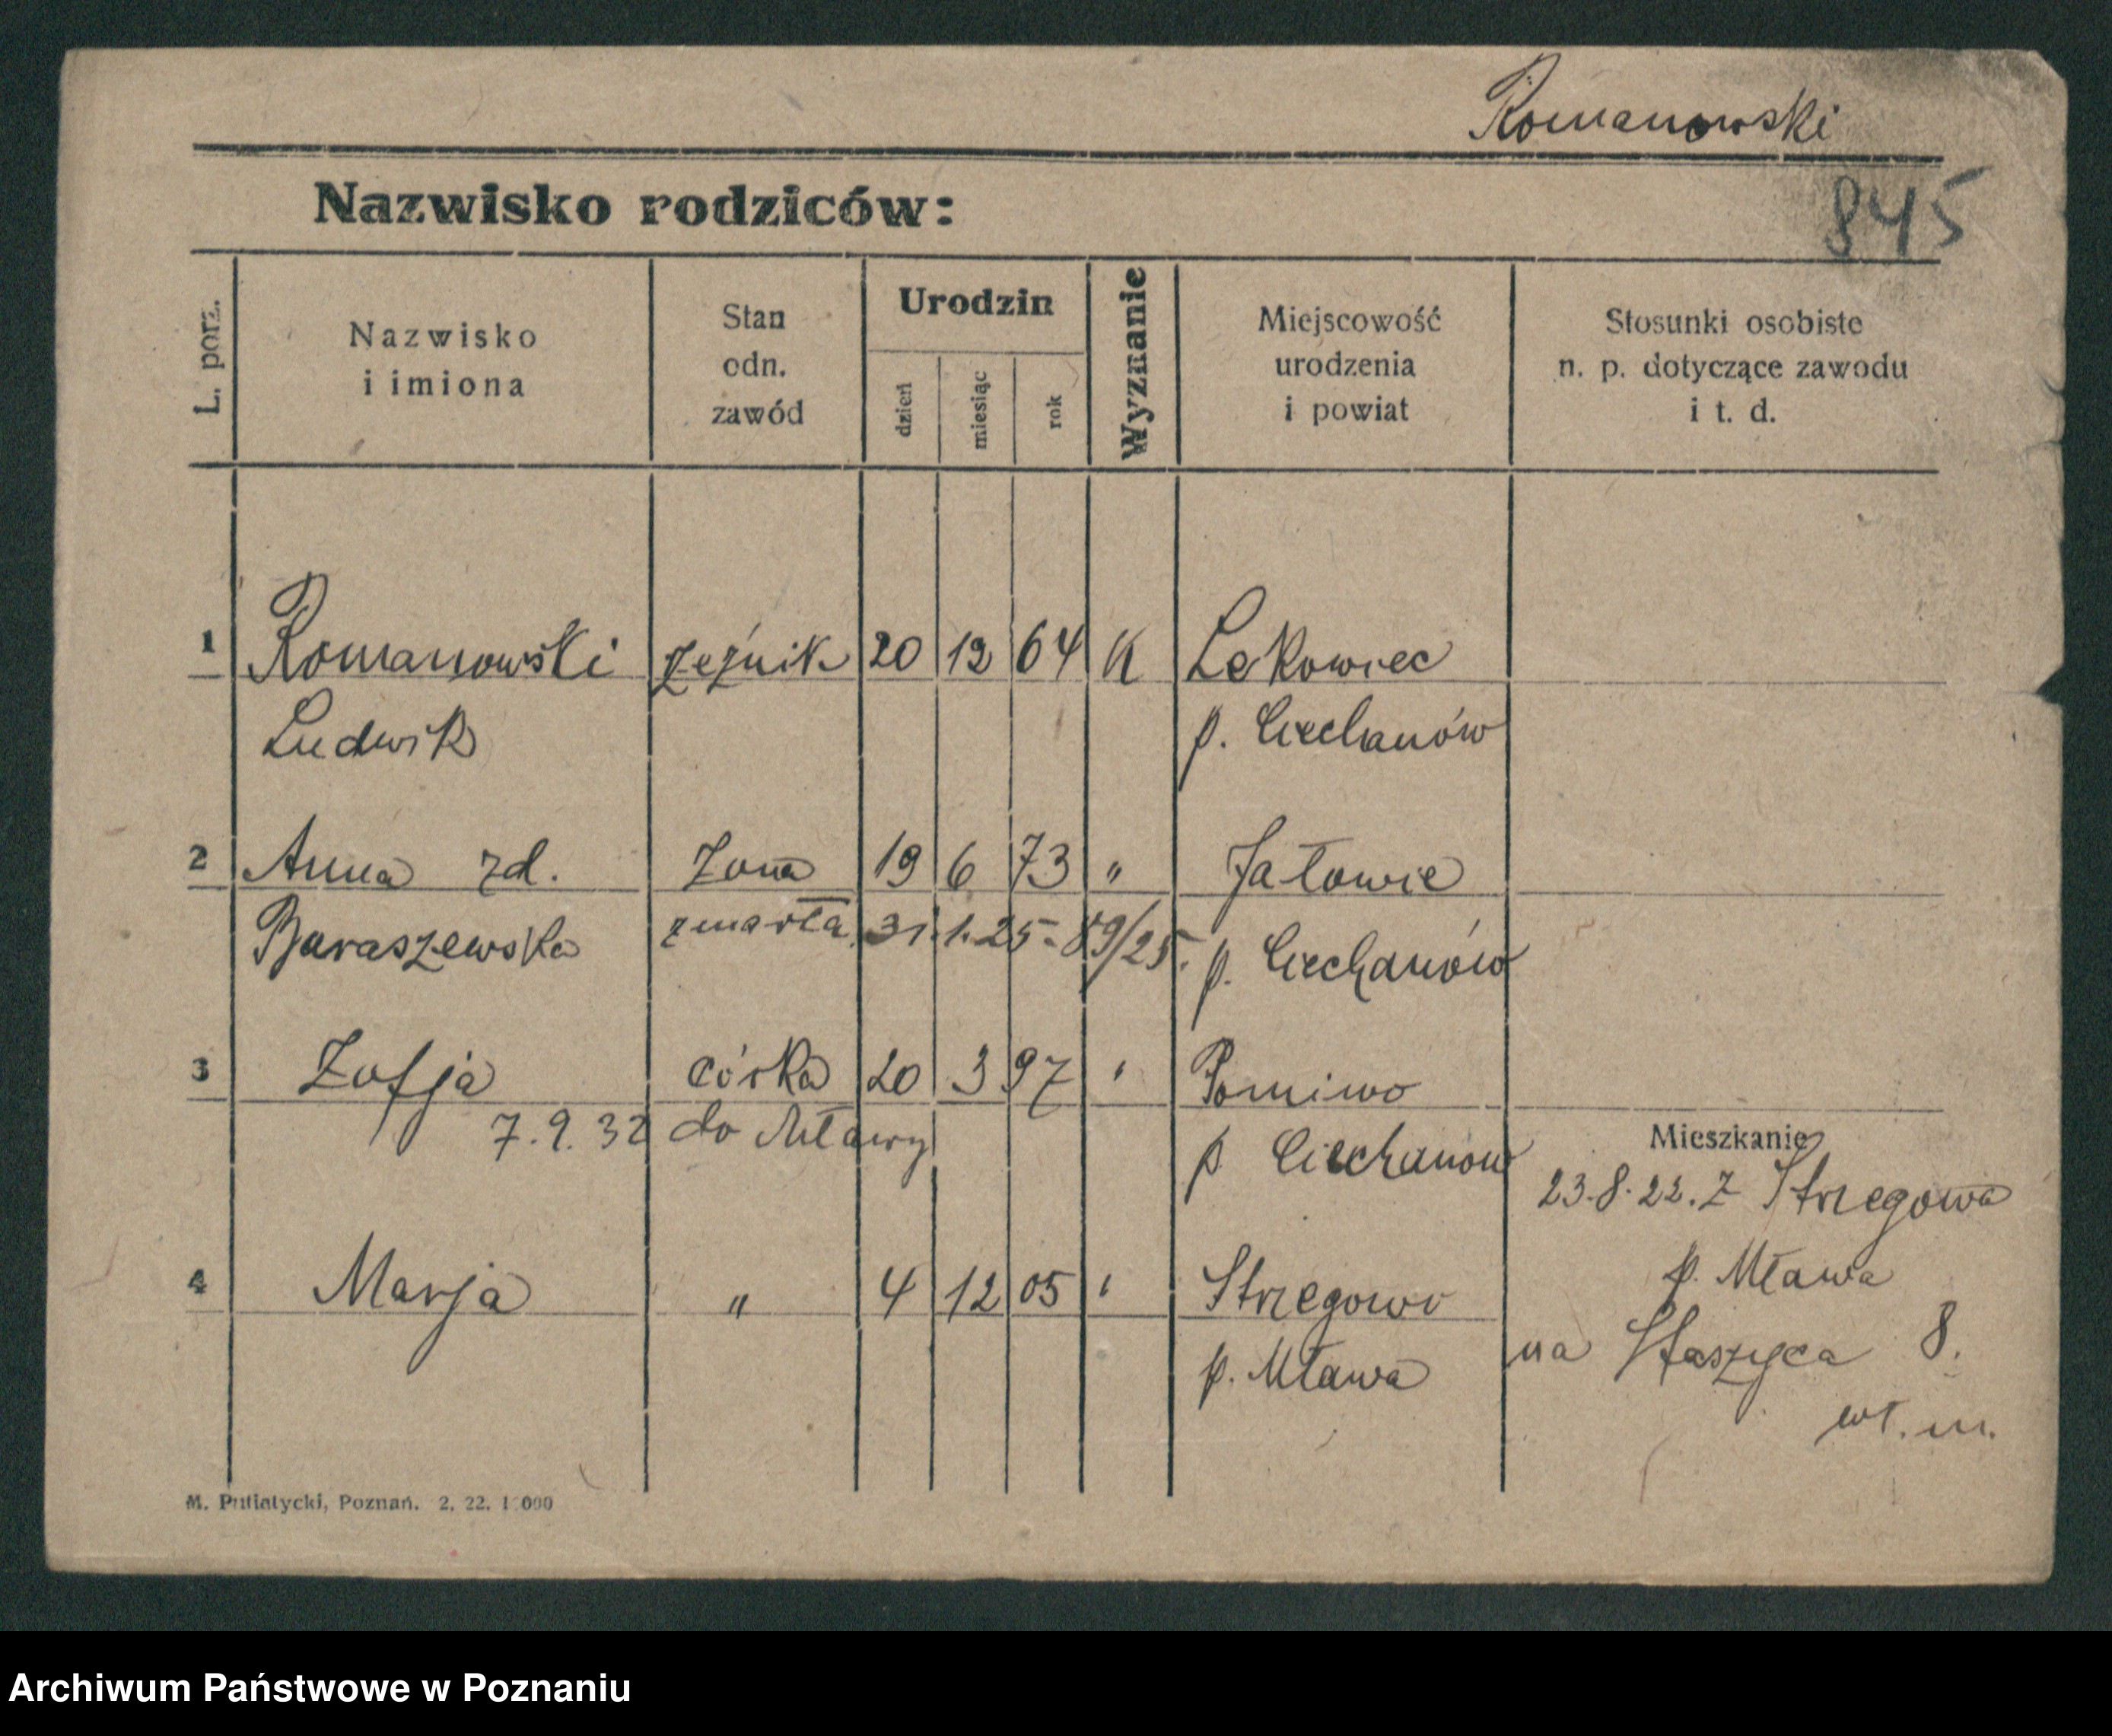 Romanowski
Nazwisko rodziców:
845
L. porz.
Nazwisko
i imiona
Stan
odn.
zawód
Urodzin
dzień
miesiąc
rok
Wyznanie
Miejscowość
urodzenia
i powiat
Stosunki osobiste
n. p. dotyczące zawodu
i t. d.
1 Romanowski rzeźnik 20 12 64 K Lekowiec
Ludwik p. Ciechanów
2 Anna zd. żona 19 6 73 " Jałowie
Baraszewska zmarła 31.1.25 - 89/25. p. Ciechanów
3 Zofja córka 20 3 97 " Pomiwo
7.9.32 do Mławy p Ciechanów
Mieszkanie
23.8.22. z Strzegowa
p. Mława
4 Marja " 4 12 05 " Strzegowo
p. Mława
na Staszyca 8.
wł. m.
M. Putiatycki, Poznań. 2. 22. 1 000
Archiwum Państwowe w Poznaniu